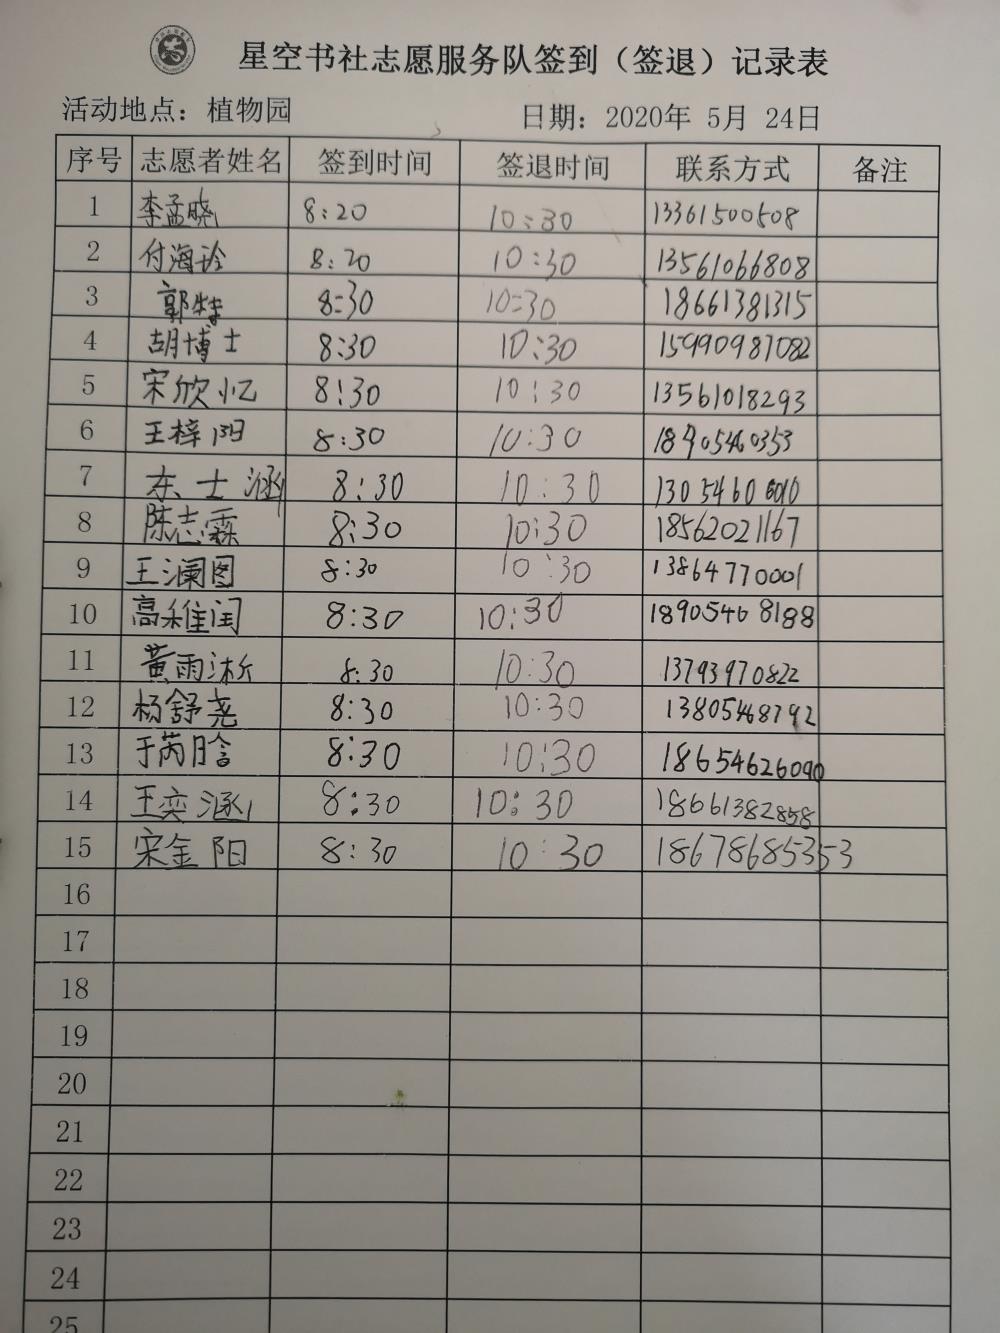 星空书社志愿服务队签到（签退）记录表
活动地点：植物园 日期：2020年 5月 24日
序号 志愿者姓名 签到时间 签退时间 联系方式 备注
1 李孟晓 8:20 10:30 13361500508
2 付海玲 8:20 10:30 13561066808
3 郭特 8:30 10:30 18661381315
4 胡博士 8:30 10:30 15990987082
5 宋欣忆 8:30 10:30 13561018293
6 王梓阳 8:30 10:30 18905460353
7 东士涵 8:30 10:30
8 陈志霖 8:30 10:30 18562021167
9 王澜图 8:30 10:30 13864770001
10 高稚闰 8:30 10:30 18905468188
11 黄雨沐 8:30 10:30 13793970822
12 杨舒尧 8:30 10:30 13805468792
13 于芮晗 8:30 10:30 18654626090
14 王奕涵 8:30 10:30 18661382858
15 宋金阳 8:30 10:30 18678685353
16
17
18
19
20
21
22
23
24
25